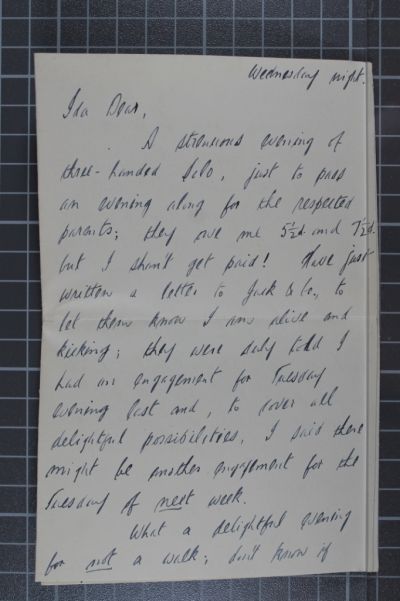 Wednesday night.
Ida Dear,
A strenuous evening of
three-handed Solo, just to pass
an evening along for the respected
parents; they owe me 5½d. and 7½d.
but I shan't get paid! Have just
written a letter to Jack & Co., to
let them know I am alive and
kicking; they were duly told I
had an engagement for Tuesday
evening last and, to cover all
delightful possibilities, I said there
might be another engagement for the
Tuesday of next week.
What a delightful evening
for not a walk; don't know if